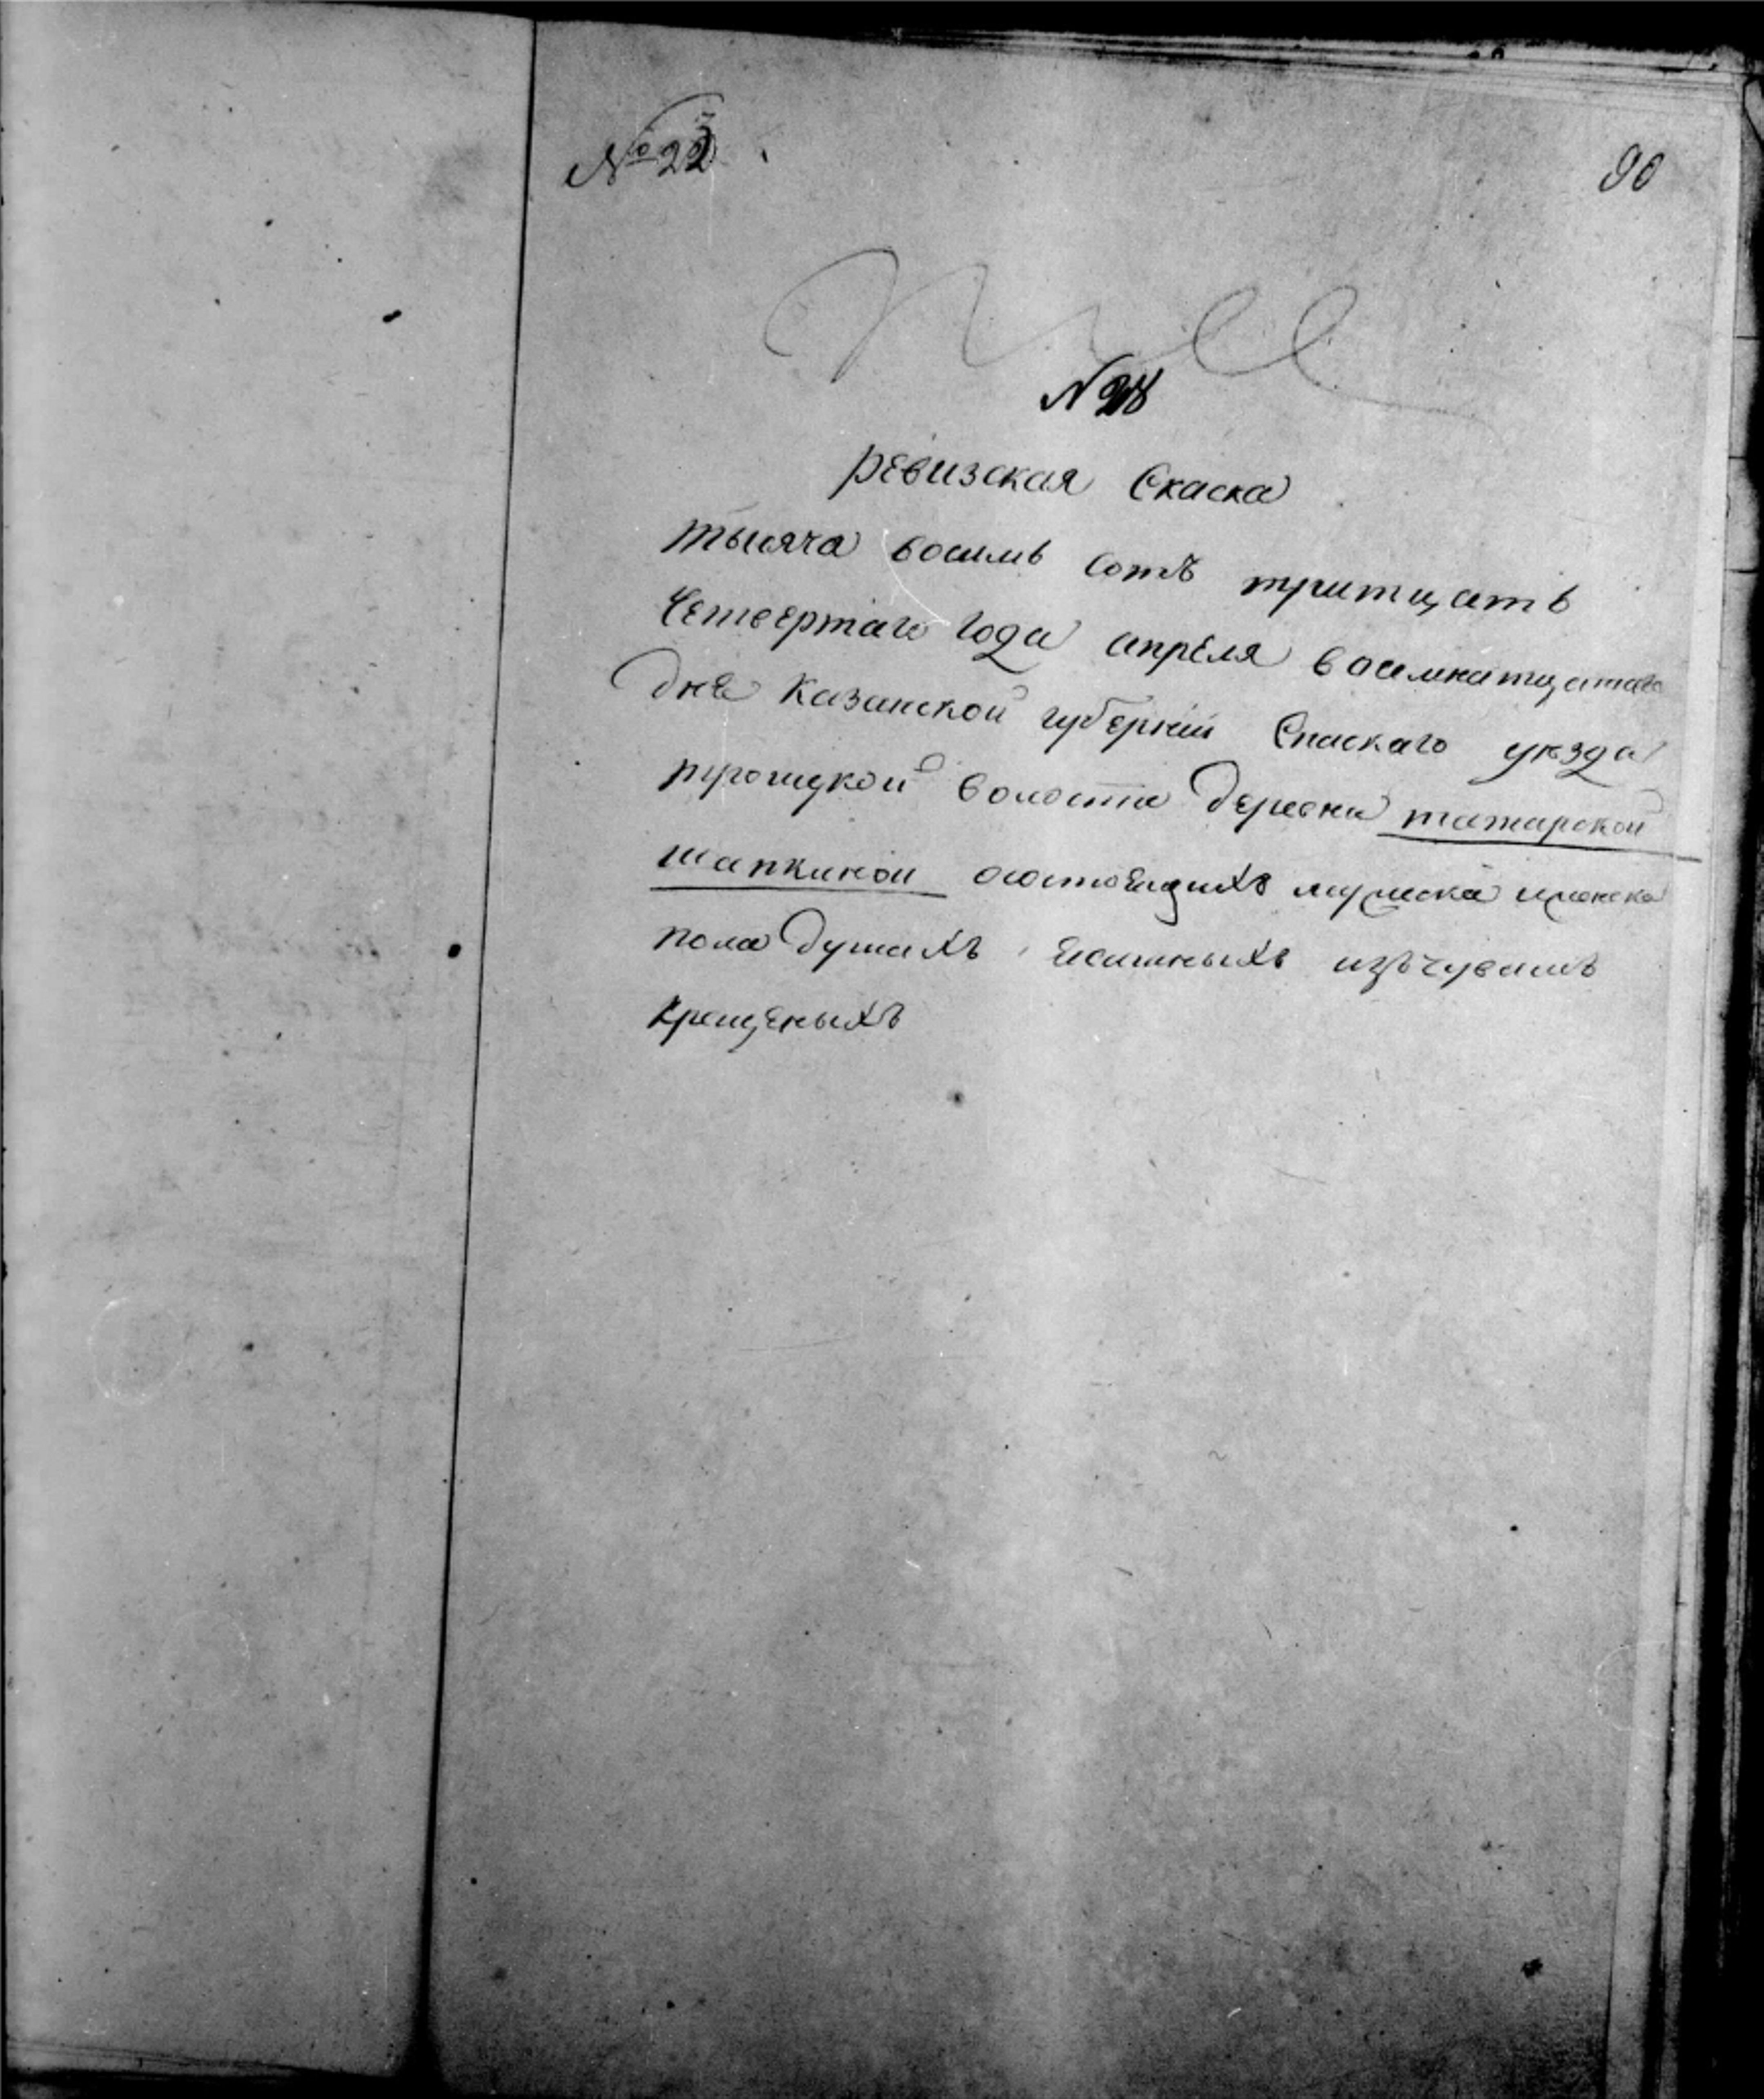 № 22
90
ревизская Скаска
тысяча восимь сотъ тритцать
Четвертаго года апреля восимнатцатаго
дня Казанской губерніи Спаскаго уезда
троицкой волости деревни татарской
шапкиной осостоещихъ мужеска иженска
пола душахъ Есашныхъ изъчувашъ
крещеныхъ